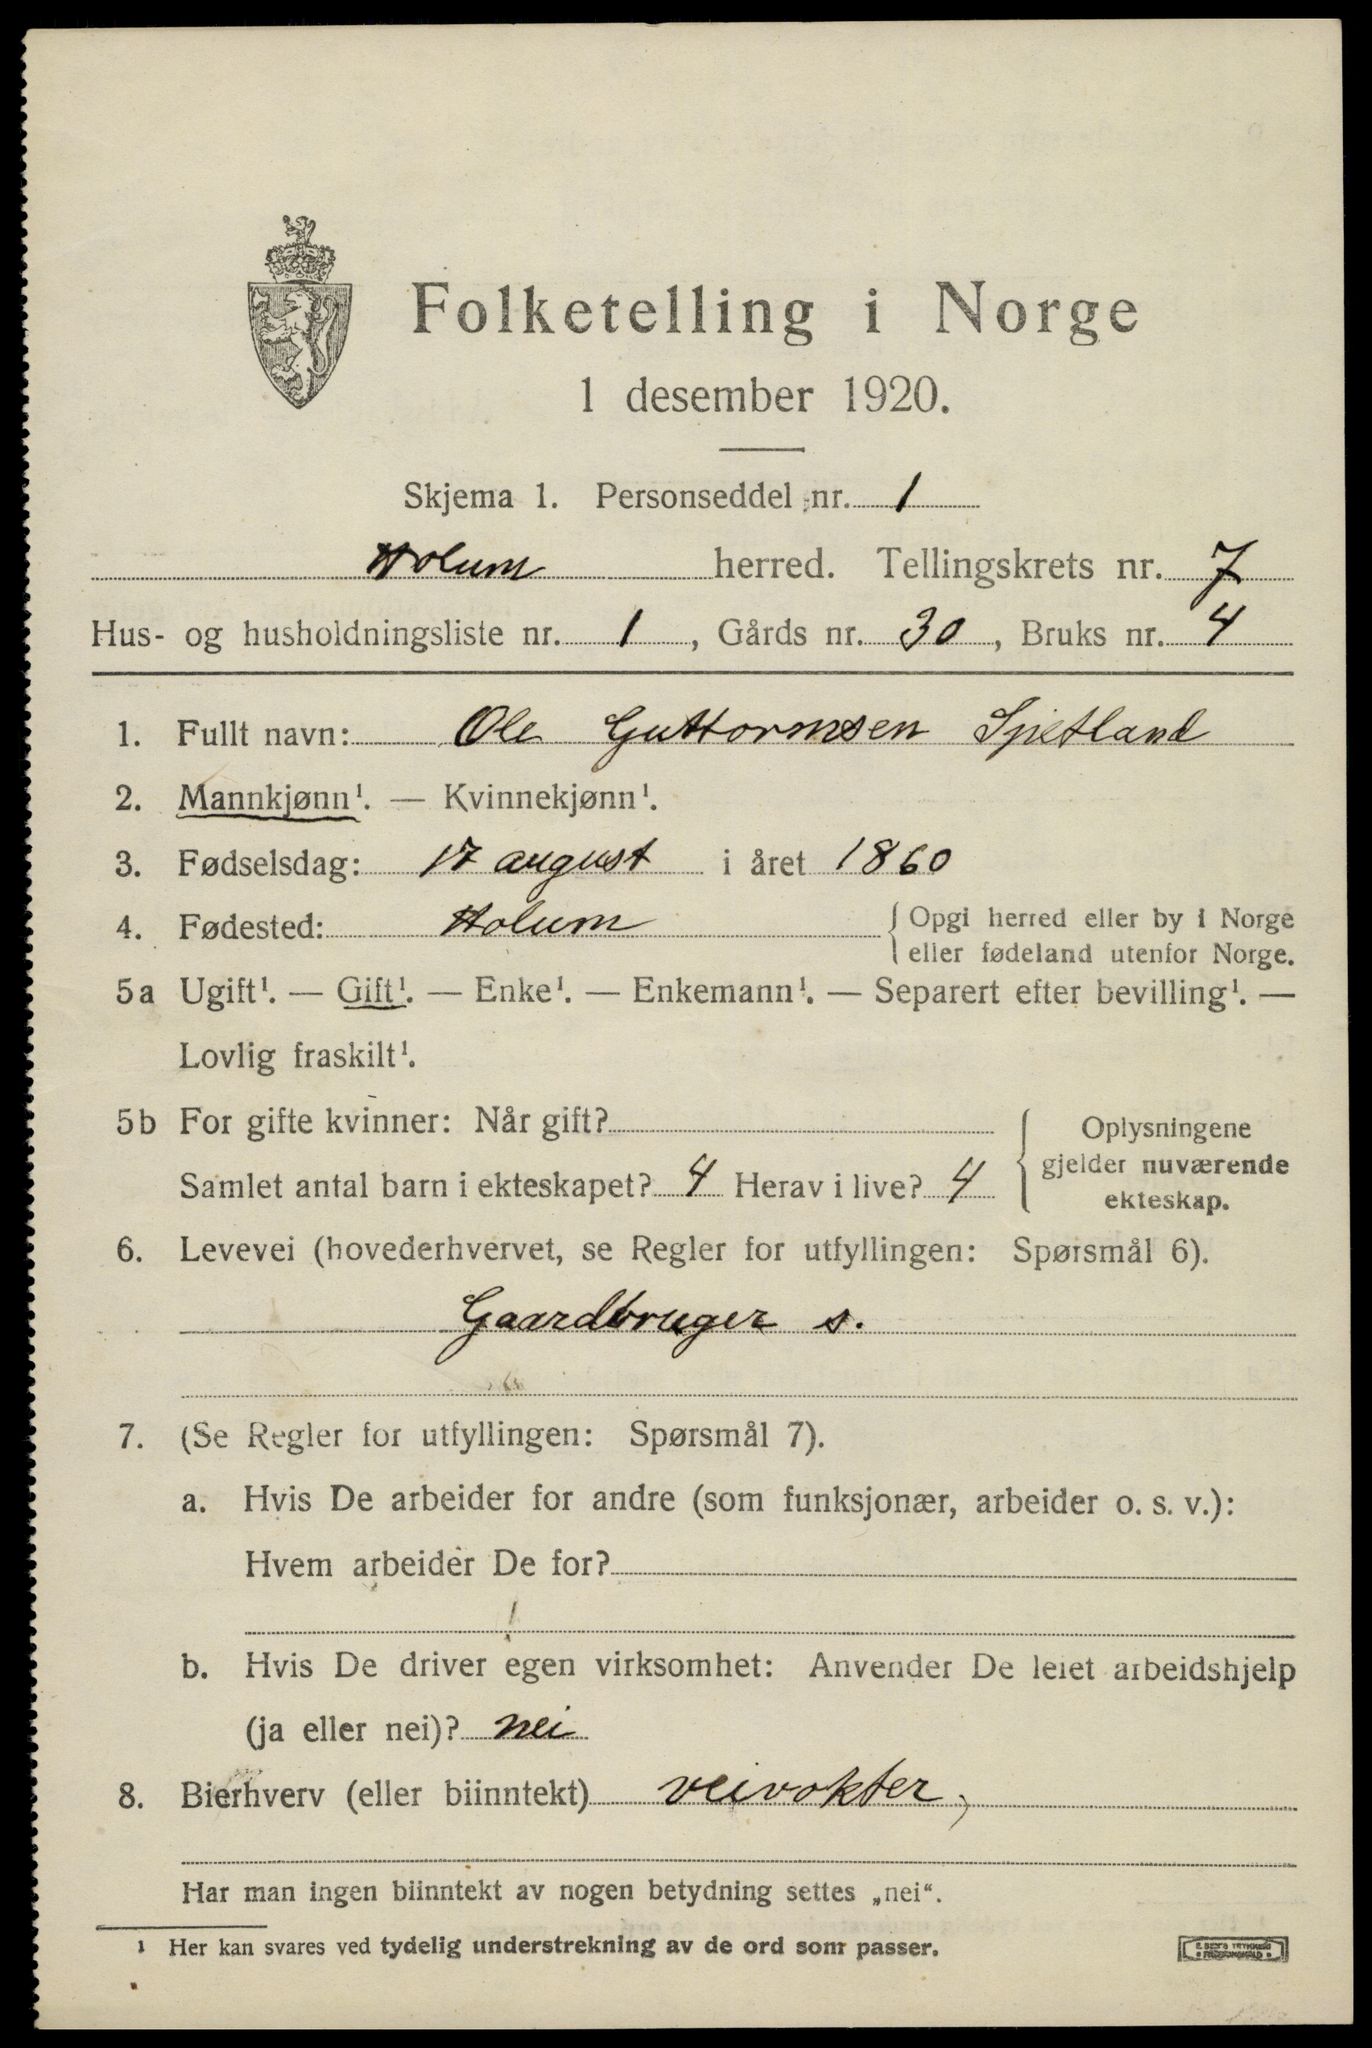 Folketelling i Norge
1 desember 1920.
Skjema 1. Personseddel nr. 1
Holum herred. Tellingskrets nr. 7
Hus- og husholdningsliste nr. 1, Gårds nr. 30, Bruks nr. 4
1. Fullt navn: Ole Guttormsen Spetland
2. Mannkjønn¹. — Kvinnekjønn¹.
3. Fødselsdag: 17 august i året 1860
4. Fødested: Holum
Opgi herred eller by i Norge
eller fødeland utenfor Norge.
5a Ugift¹. — Gift¹. — Enke¹. — Enkemann¹. — Separert efter bevilling¹. —
Lovlig fraskilt¹.
5b For gifte kvinner: Når gift?
Samlet antal barn i ekteskapet? 4 Herav i live? 4
Oplysningene
gjelder nuværende
ekteskap.
6. Levevei (hovederhvervet, se Regler for utfyllingen: Spørsmål 6).
Gaardbruger s.
7. (Se Regler for utfyllingen: Spørsmål 7).
a. Hvis De arbeider for andre (som funksjonær, arbeider o. s. v.):
Hvem arbeider De for?
b. Hvis De driver egen virksomhet: Anvender De leiet arbeidshjelp
(ja eller nei)? nei
8. Bierhverv (eller biinntekt) veivokter,
Har man ingen biinntekt av nogen betydning settes „nei“.
¹ Her kan svares ved tydelig understrekning av de ord som passer.